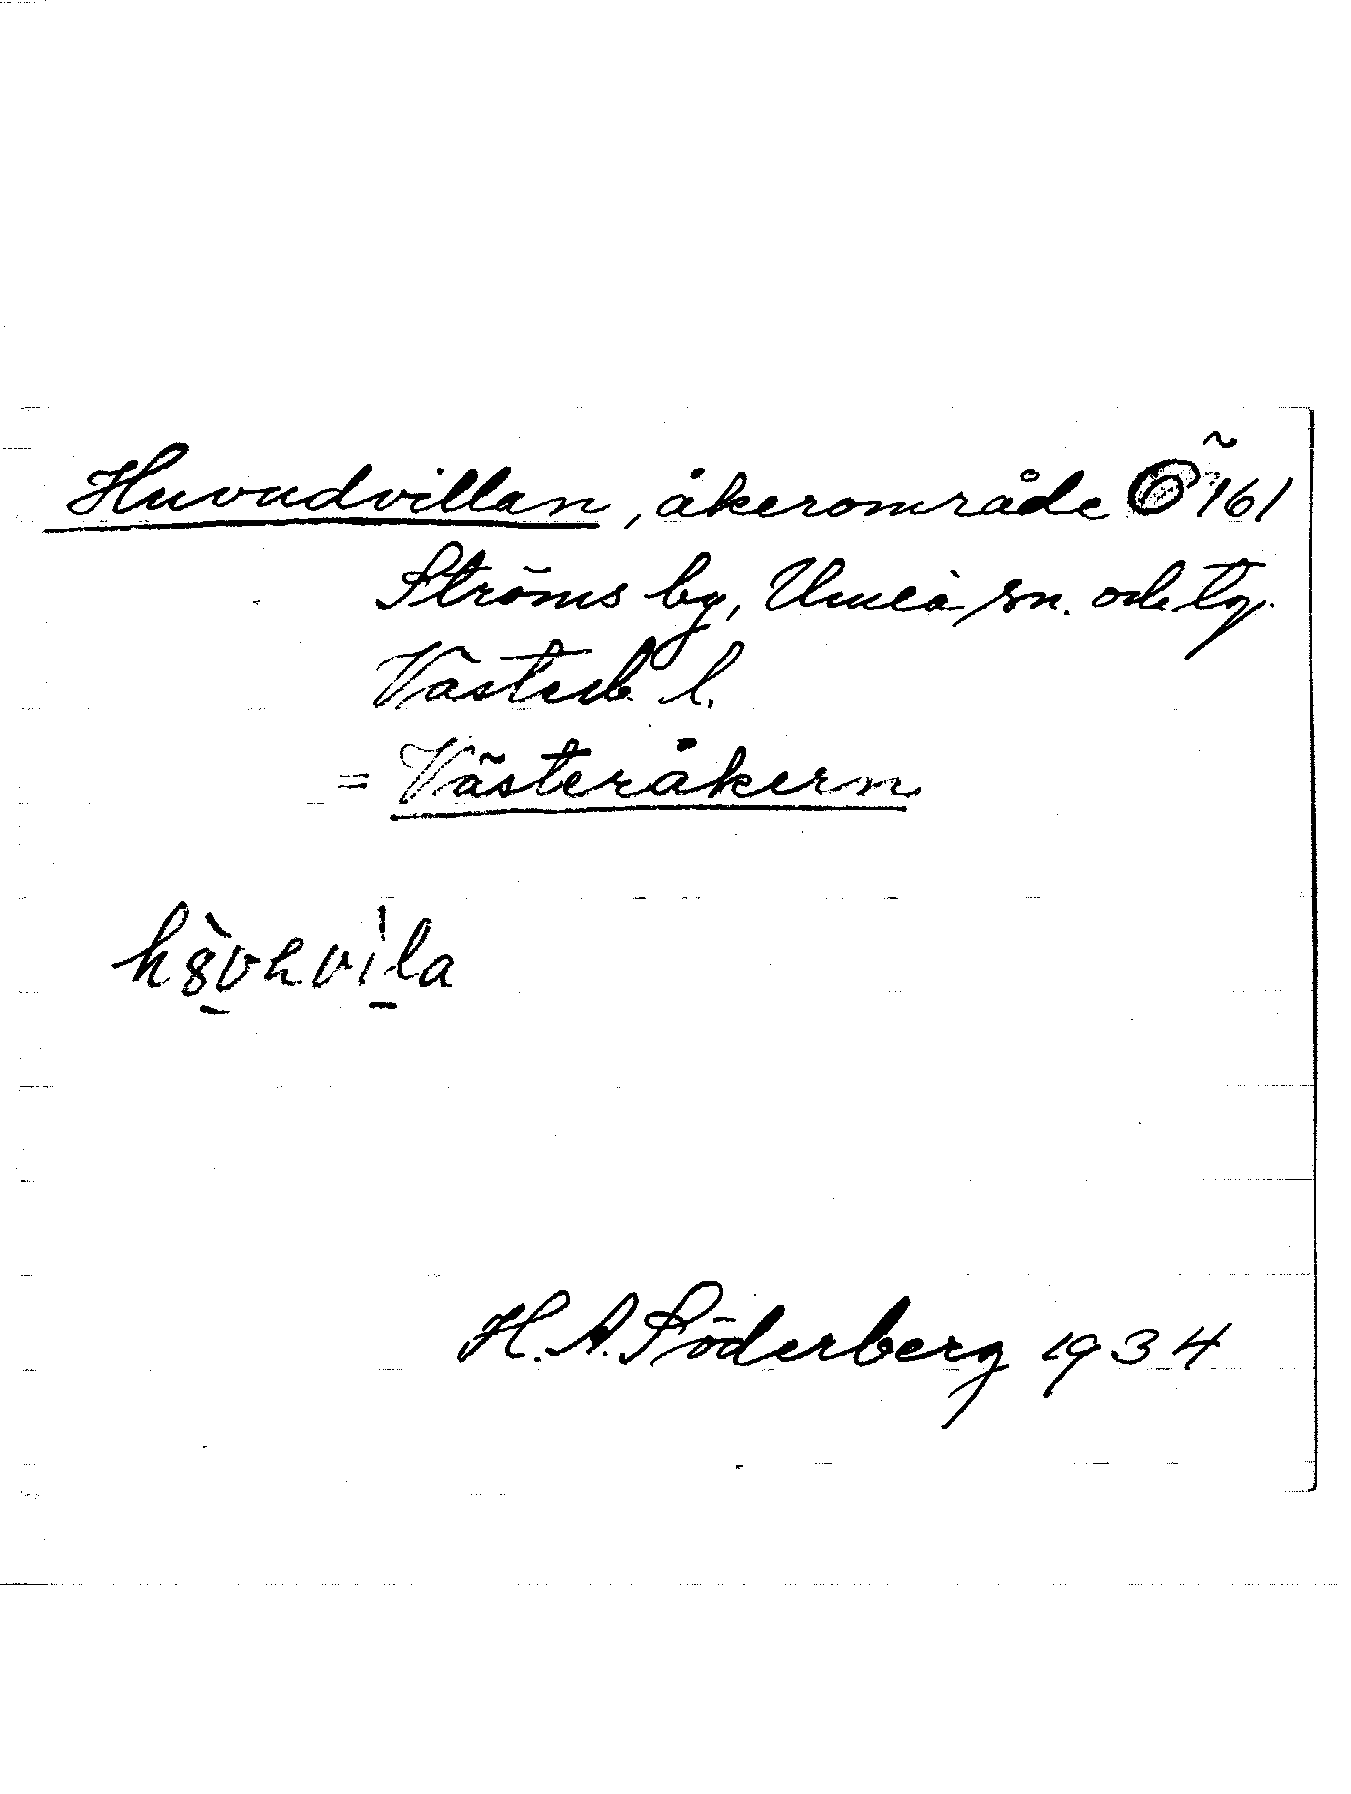 Huvudvillan, åkerområde Ö 161
Ströms by, Umeå sn. och tg.
Västerb. l.
= Västeråkern
H. A. Söderberg 1934